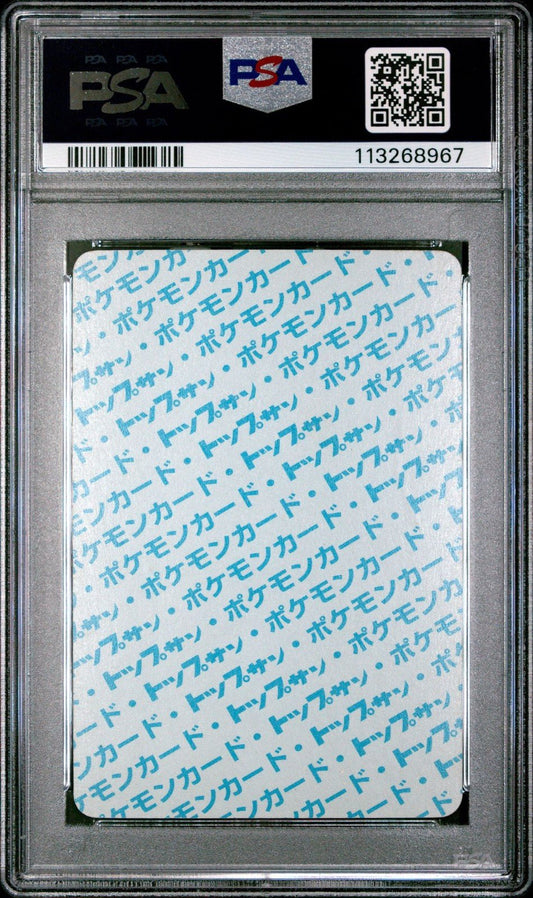 PSA PSA PSA
PSA
PSA PSA PSA
PSA
113268967
モンカ
ポケモンカード
・ポケモンカード・
トップサン・ポケモンカード・
・トップサン・ポケモンカ
ド・トップサン・ポケモン
カード・トップサン・ポケ
ンカード・トップサン・
モンカード・トップサン
ポケモンカード・トップ
・ポケモンカード・ト
サン・ポケモンカード・
トップサン・ポケモンカード
・トップサン・ポケモンカ
ド・トップサン・ポケモ
カード・トップサン・
ンカード・トップサン
モンカード・トップ
ポケモンカード・
PSA